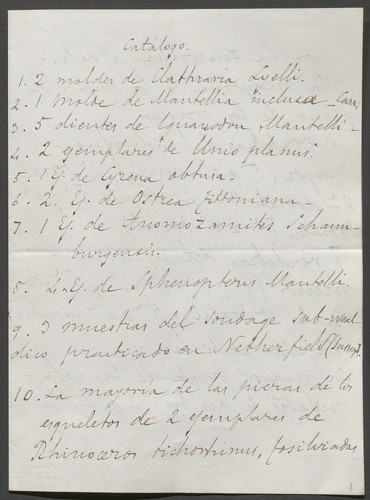 Catálogo.
1. 2 moldes de Lattraria Lyelli.
2. 1 Molde de Mantellia inclusa - Cara
3. 5 dientes de Iguanodon Mantelli -
4. 2 ejemplares de Unio planus.
5. 1 Ej. de Cyrena obtusa -
6. 2. Ej. de Ostrea Fittoniana -
7. 1 Ej. de Anomozamites Schaum-
burgensis.
8. 2. Ej. de Sphenopteris Mantelli.
9. 3 muestras del sondage sub-weal
dico practicado en Netherfield (Sussex).
10. La mayoria de las piezas de los
esqueletos de 2 ejemplares de
Rhinoceros tichorhinus, fosilizadas
1